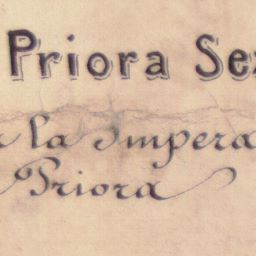 Priora Se
r la Impera
Priora